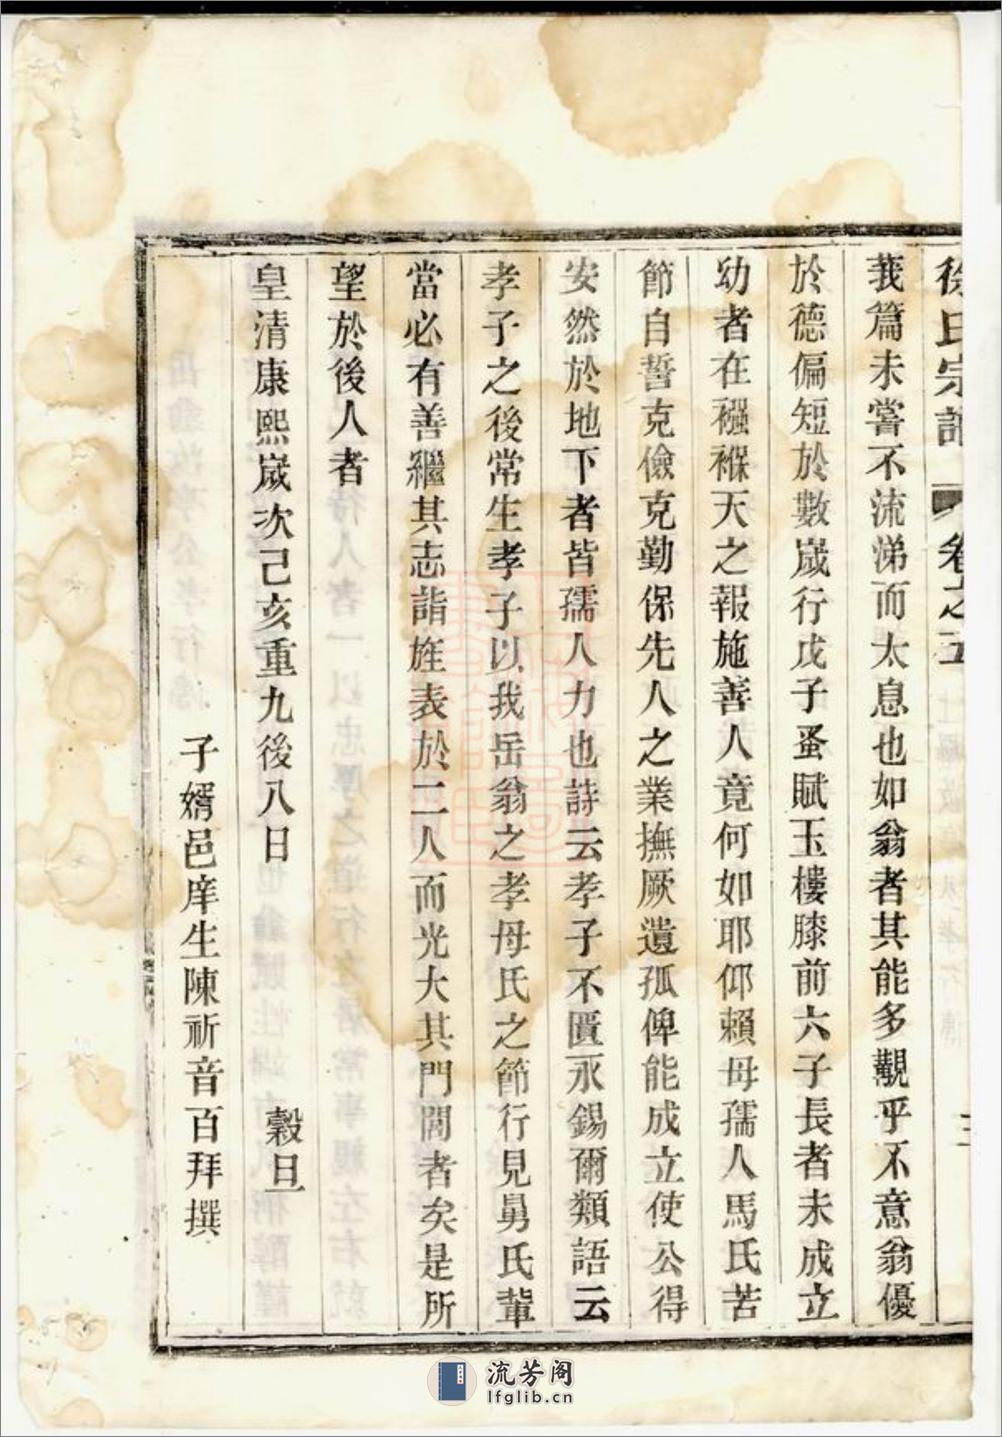 徐氏宗譜 卷之五 三
莪篇未嘗不流涕而太息也如翁者其能多覯乎不意翁優
於德偏短於數嵗行戊子蚤賦玉樓膝前六子長者未成立
幼者在襁褓天之報施善人竟何如耶仰賴母孺人馬氏苦
節自誓克儉克勤保先人之業撫厥遺孤俾能成立使公得
安然於地下者皆孺人力也詩云孝子不匱永錫爾類語云
孝子之後常生孝子以我岳翁之孝母氏之節行見舅氏輩
當必有善繼其志詣旌表於二人而光大其門閭者矣是所
望於後人者
皇清康熙嵗次己亥重九後八日 穀旦
子婿邑庠生陳祈音百拜撰
流芳阁
lfglib.cn